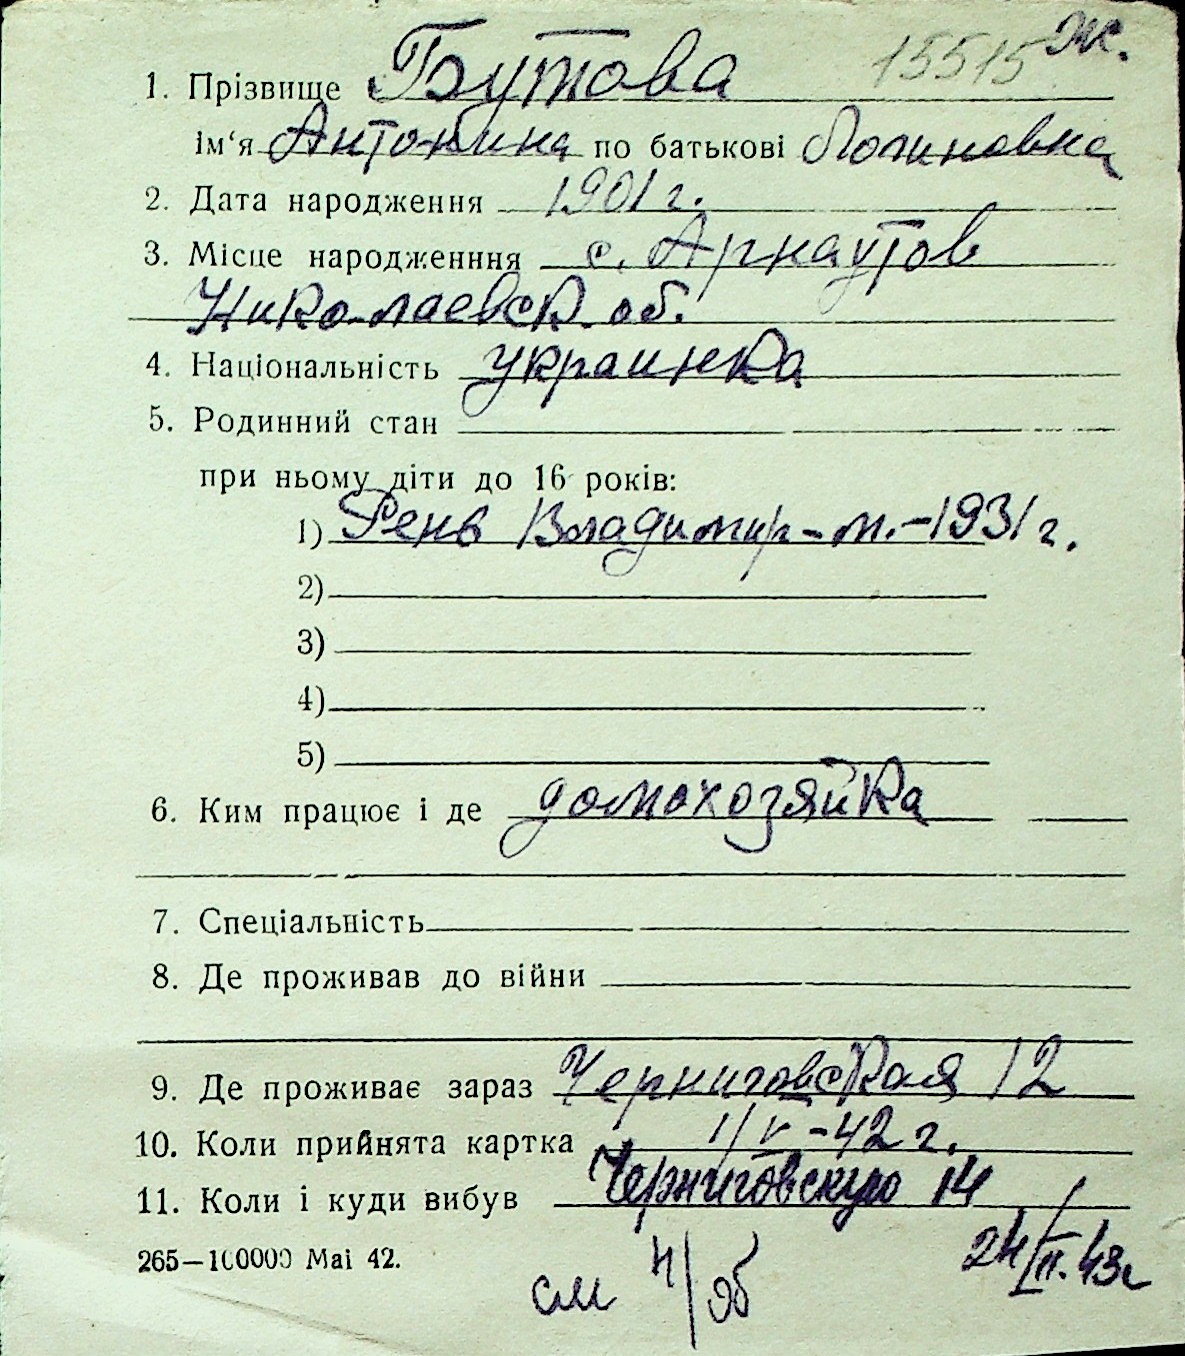 15515 Ж.
1. Прізвище Бутова
Ім'я Антонина по батькові Логиновна
2. Дата народження 1901 г.
3. Місце народженння с. Арнаутов
Николаевск. об.
4. Національність украинка
5. Родинний стан
при ньому діти до 16 років:
1) Рень Владимир - м. - 1931 г.
2)
3)
4)
5)
6. Ким працює і де домохозяйка
7. Спеціальність
8. Де проживав до війни
9. Де проживає зараз Черниговская 12
10. Коли прийнята картка 1/V - 42 г.
11. Коли і куди вибув Черниговскую 14
265—100000 Маі 42. 24/II. 43 г
см н/об